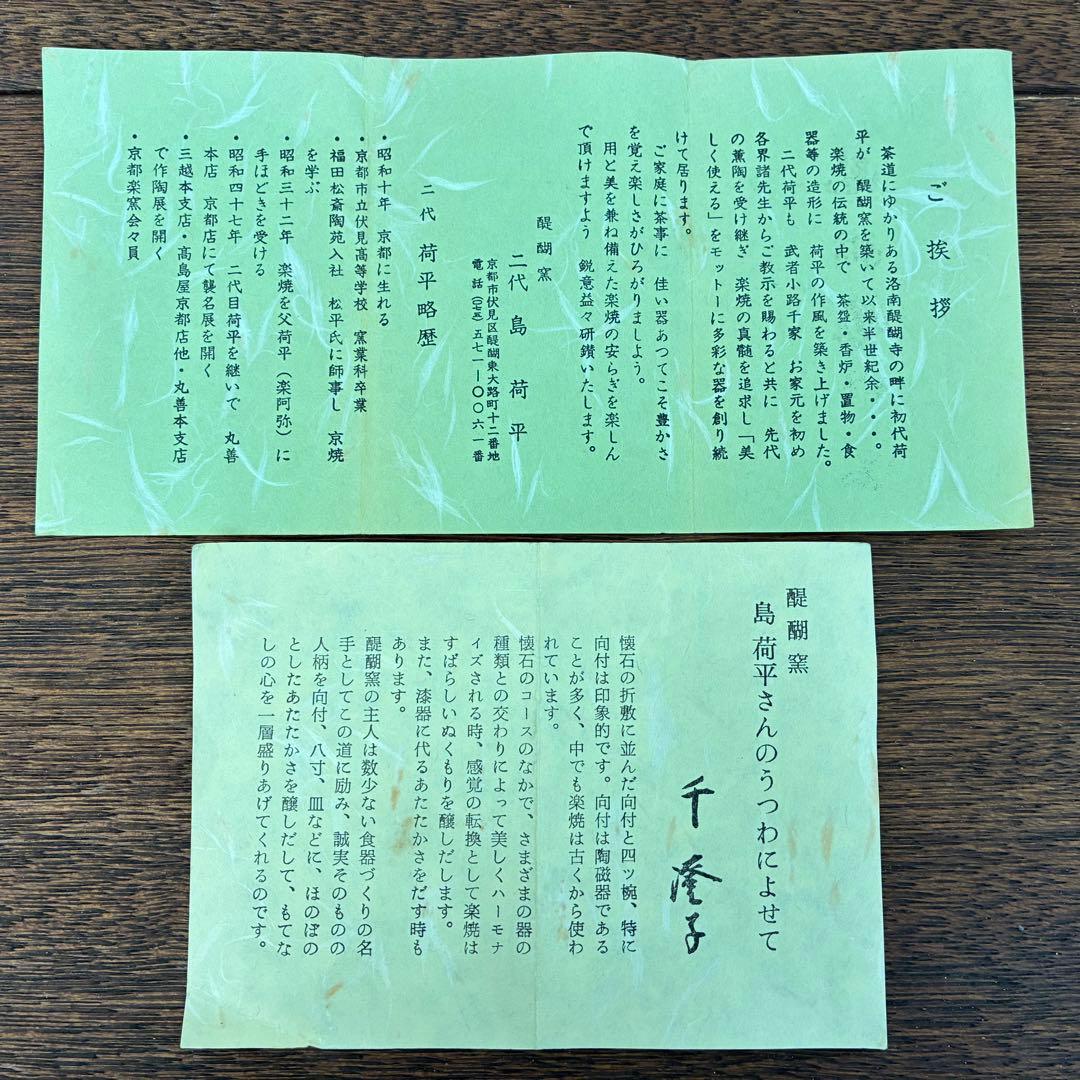 ご挨拶
茶道にゆかりある洛南醍醐寺の畔に初代荷
平が 醍醐窯を築いて以来半世紀余・・・。
楽焼の伝統の中で 茶盌・香炉・置物・食
器等の造形に 荷平の作風を築き上げました。
二代荷平も 武者小路千家 お家元を初め
各界諸先生からご教示を賜わると共に 先代
の薫陶を受け継ぎ 楽焼の真髄を追求し「美
しく使える」をモットーに多彩な器を創り続
けて居ります。
ご家庭に茶事に 佳い器あつてこそ豊かさ
を覚え楽しさがひろがりましよう。
用と美を兼ね備えた楽焼の安らぎを楽しん
で頂けますよう 鋭意益々研鑚いたします。
醍醐窯
二代 島荷平
京都市伏見区醍醐東大路町十二番地
電話(〇七五)五七一ー〇〇六一番
二代 荷平略歴
・昭和十年 京都に生れる
・京都市立伏見高等学校 窯業科卒業
・福田松斎陶苑入社 松平氏に師事し 京焼
を学ぶ
・昭和三十二年 楽焼を父荷平(楽阿弥)に
手ほどきを受ける
・昭和四十七年 二代目荷平を継いで 丸善
本店 京都店にて襲名展を開く
・三越本支店・高島屋京都店他・丸善本支店
で作陶展を開く
・京都楽窯会々員
醍醐窯
島荷平さんのうつわによせて
千澄子
懐石の折敷に並んだ向付と四ッ椀、特に
向付は印象的です。向付は陶磁器である
ことが多く、中でも楽焼は古くから使わ
れています。
懐石のコースのなかで、さまざまの器の
種類との交わりによって美しくハーモナ
イズされる時、感覚の転換として楽焼は
すばらしいぬくもりを醸しだします。
また、漆器に代るあたたかさをだす時も
あります。
醍醐窯の主人は数少ない食器づくりの名
手としてこの道に励み、誠実そのものの
人柄を向付、八寸、皿などに、ほのぼの
としたあたたかさを醸しだして、もてな
しの心を一層盛りあげてくれるのです。